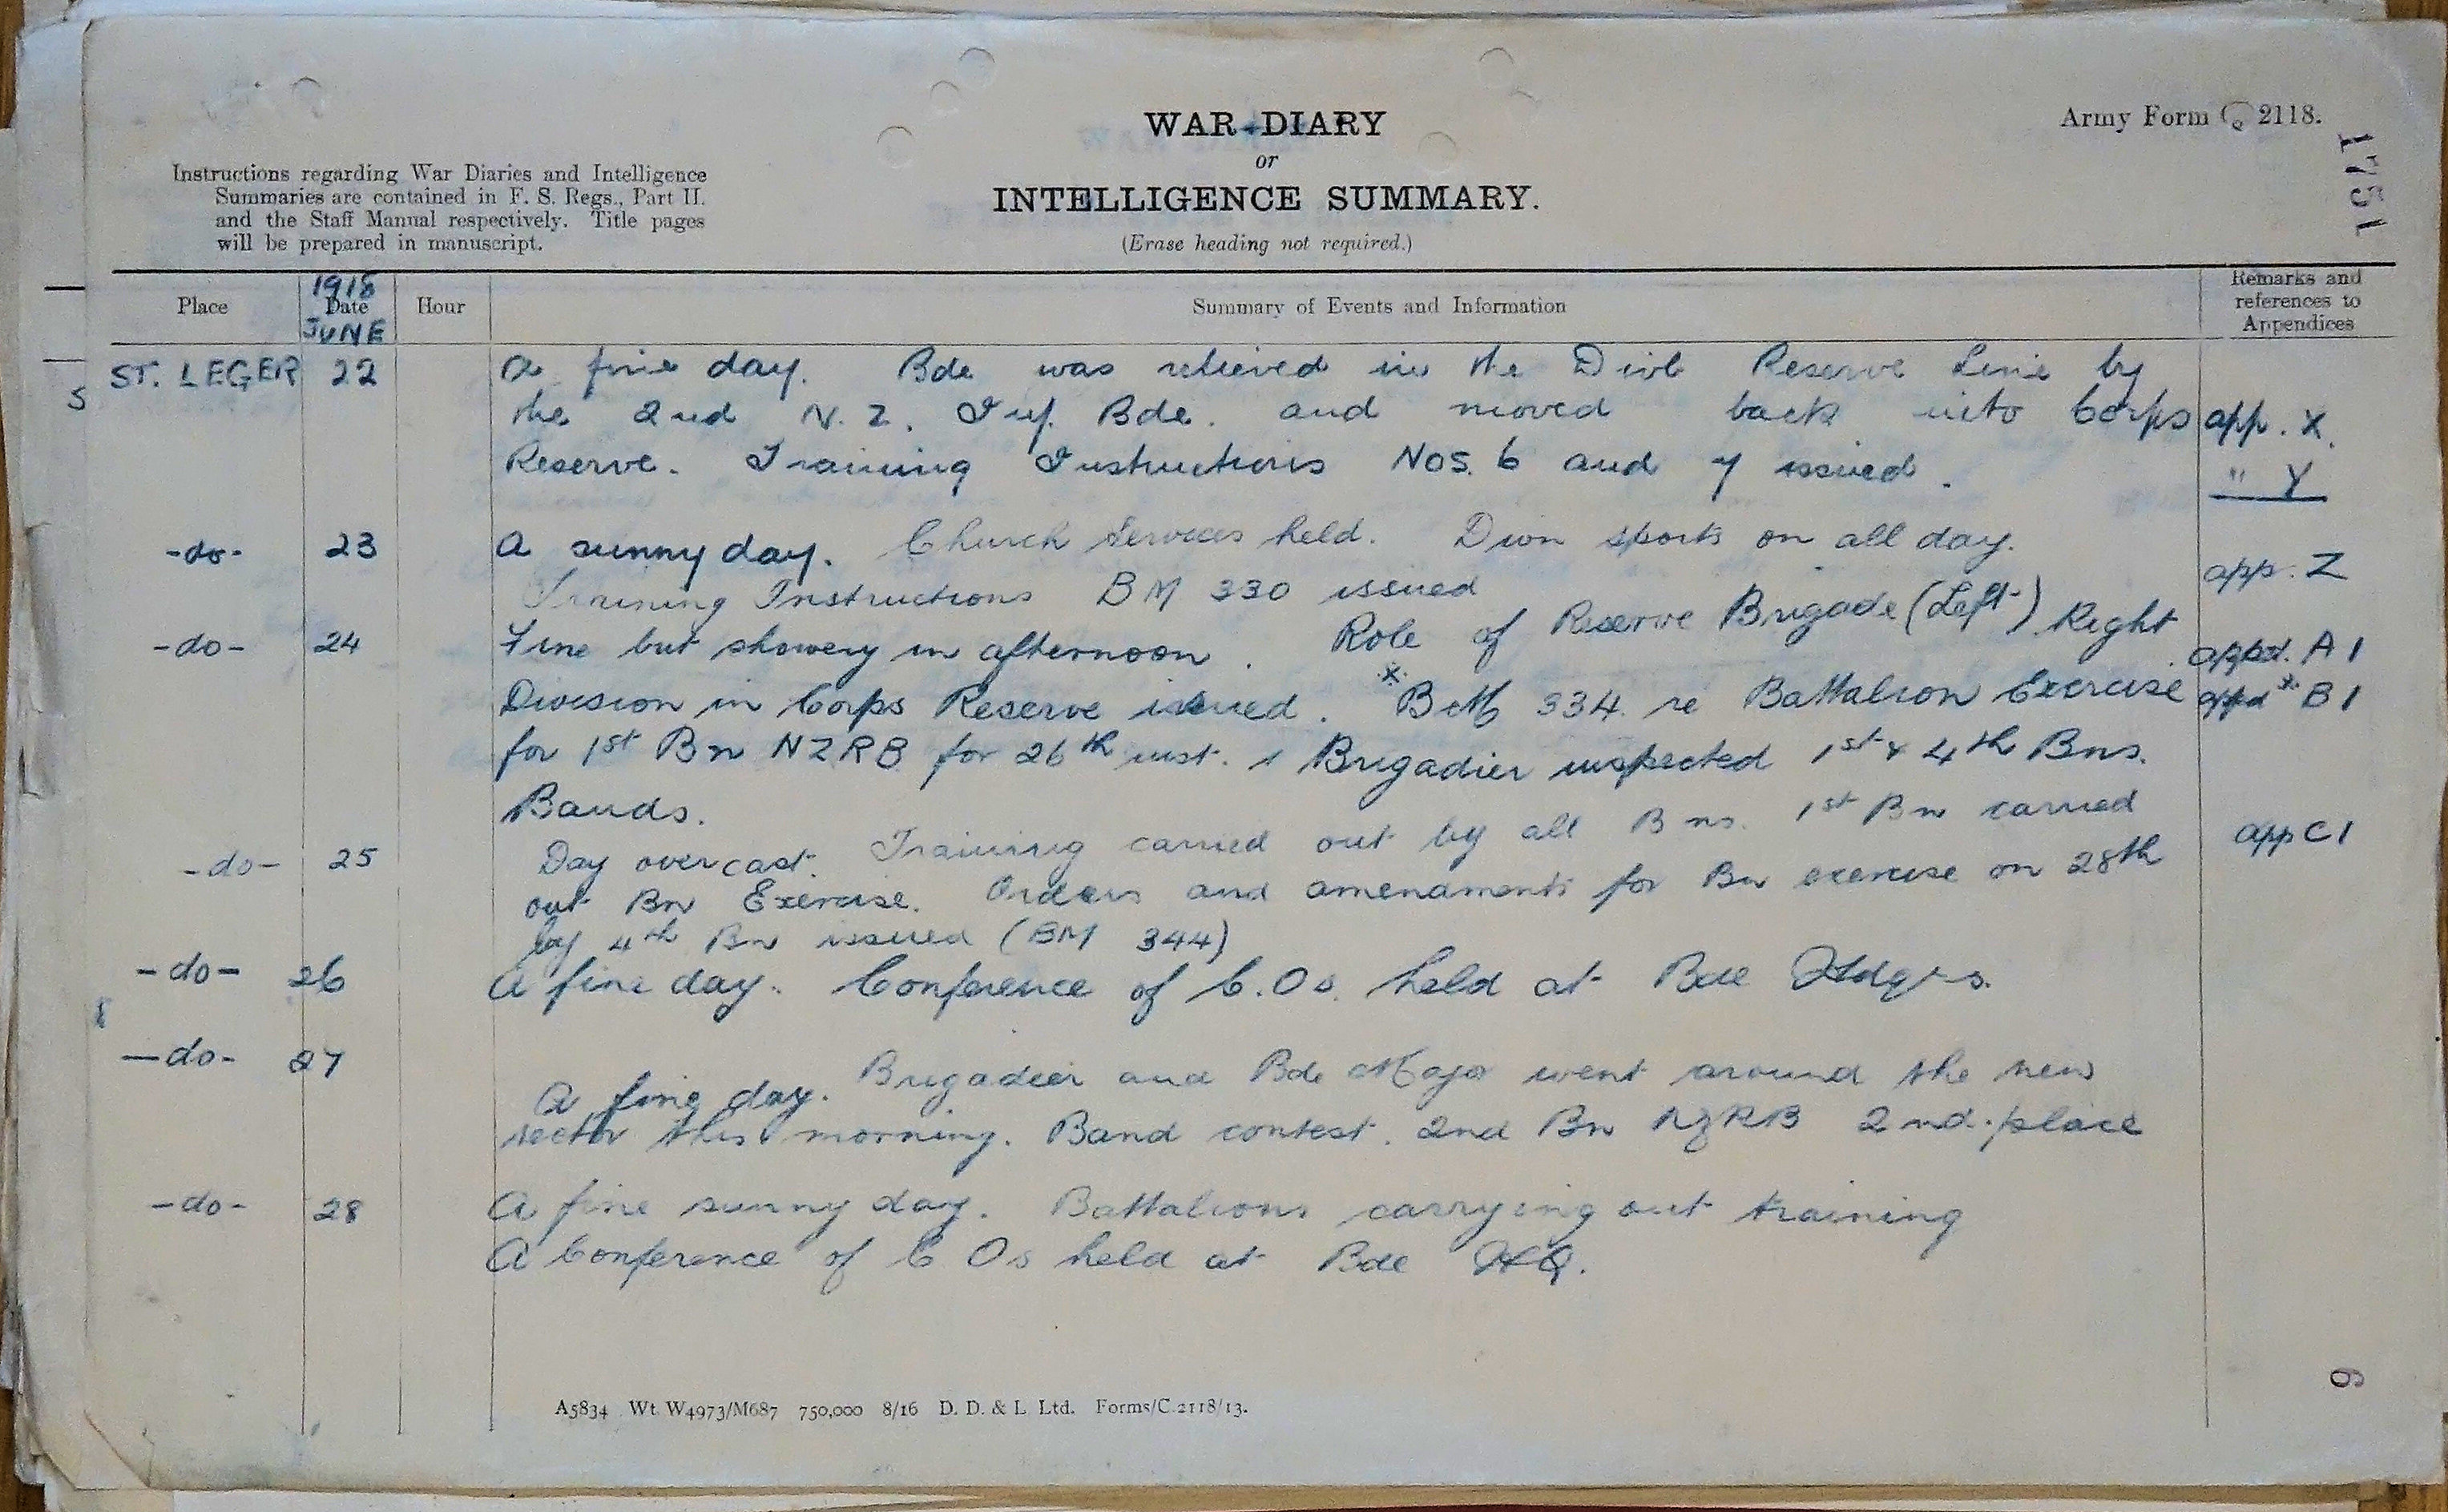 WAR DIARY
or
INTELLIGENCE SUMMARY.
(Erase heading not required.)
Army Form C 2118.
1751
Instructions regarding War Diaries and Intelligence
Summaries are contained in F. S. Regs., Part II.
and the Staff Manual respectively. Title pages
will be prepared in manuscript.
Place
1918
Date
JUNE
Hour
Summary of Events and Information
Remarks and
references to
Appendices
ST. LEGER 22 A fine day. Bde was relieved in the Divl Reserve Line by
the 2nd N. Z. Inf. Bde. and moved back into Corps app. X.
Reserve. Training Instructions Nos. 6 and 7 issued. " Y
-do- 23 A sunny day. Church Services held. Divn sports on all day.
Training Instructions BM 330 issued app. Z
-do- 24 Fine but showery in afternoon. Role of Reserve Brigade (Left) Right A1
Division in Corps Reserve issued. * BM 334 re Battalion Exercise * B1
for 1st Bn NZRB for 26th inst. Brigadier inspected 1st & 4th Bns.
Bands.
-do- 25 Day overcast. Training carried out by all Bns. 1st Bn carried app C1
out Bn Exercise. Orders and amenaments for Bn exercise on 28th
by 4th Bn issued (BM 344)
-do- 26 A fine day. Conference of C.Os. held at Bde Hdqrs.
-do- 27 A fine day. Brigadier and Bde Major went around the new
sector this morning. Band contest. 2nd Bn NZRB 2nd place
-do- 28 A fine sunny day. Battalions carrying out training
A Conference of C Os held at Bde HQ.
A5834 Wt. W4973/M687 750,000 8/16 D. D. & L. Ltd. Forms/C.2118/13.